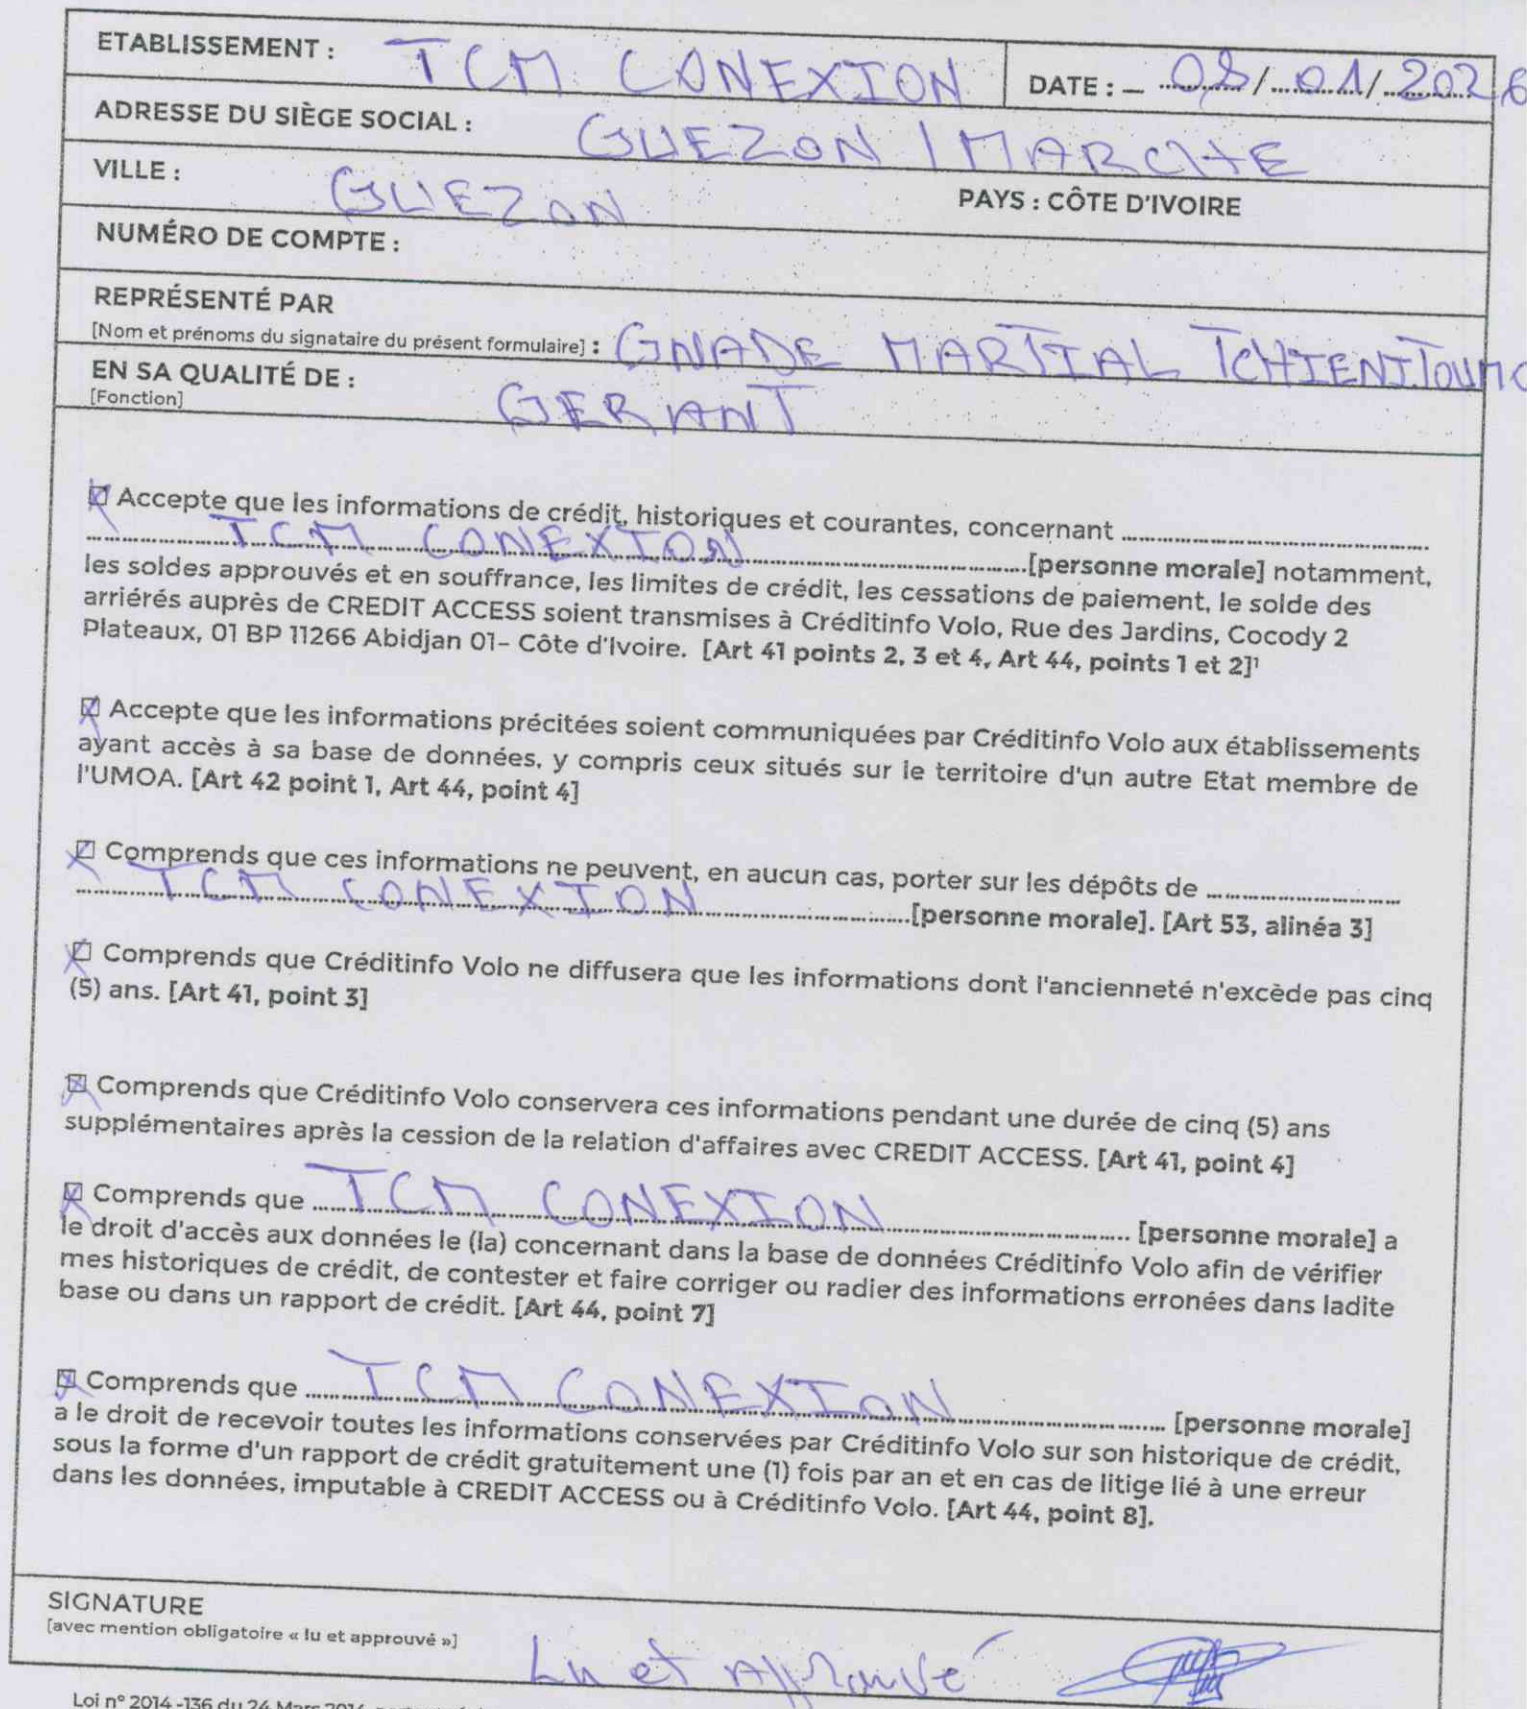 ETABLISSEMENT : TCM CONEXION
DATE : – 08/ 01/ 2026
ADRESSE DU SIÈGE SOCIAL : GUEZON / MARCHE
VILLE : GUEZON
PAYS : CÔTE D'IVOIRE
NUMÉRO DE COMPTE :
REPRÉSENTÉ PAR
[Nom et prénoms du signataire du présent formulaire] : GNADE MARTIAL
EN SA QUALITÉ DE : GERANT
[Fonction]
☒ Accepte que les informations de crédit, historiques et courantes, concernant ..........
TCM CONEXION [personne morale] notamment,
les soldes approuvés et en souffrance, les limites de crédit, les cessations de paiement, le solde des
arriérés auprès de CREDIT ACCESS soient transmises à Créditinfo Volo, Rue des Jardins, Cocody 2
Plateaux, 01 BP 11266 Abidjan 01– Côte d'Ivoire. [Art 41 points 2, 3 et 4, Art 44, points 1 et 2]¹
☒ Accepte que les informations précitées soient communiquées par Créditinfo Volo aux établissements
ayant accès à sa base de données, y compris ceux situés sur le territoire d'un autre Etat membre de
l'UMOA. [Art 42 point 1, Art 44, point 4]
☒ Comprends que ces informations ne peuvent, en aucun cas, porter sur les dépôts de ..........
TCM CONEXION [personne morale]. [Art 53, alinéa 3]
☒ Comprends que Créditinfo Volo ne diffusera que les informations dont l'ancienneté n'excède pas cinq
(5) ans. [Art 41, point 3]
☒ Comprends que Créditinfo Volo conservera ces informations pendant une durée de cinq (5) ans
supplémentaires après la cession de la relation d'affaires avec CREDIT ACCESS. [Art 41, point 4]
☒ Comprends que TCM CONEXION [personne morale] a
le droit d'accès aux données le (la) concernant dans la base de données Créditinfo Volo afin de vérifier
mes historiques de crédit, de contester et faire corriger ou radier des informations erronées dans ladite
base ou dans un rapport de crédit. [Art 44, point 7]
☒ Comprends que TCM CONEXION [personne morale]
a le droit de recevoir toutes les informations conservées par Créditinfo Volo sur son historique de crédit,
sous la forme d'un rapport de crédit gratuitement une (1) fois par an et en cas de litige lié à une erreur
dans les données, imputable à CREDIT ACCESS ou à Créditinfo Volo. [Art 44, point 8].
SIGNATURE
[avec mention obligatoire « lu et approuvé »]
Lu et Approuvé
Loi n° 2014 -136 du 24 Mars 2014